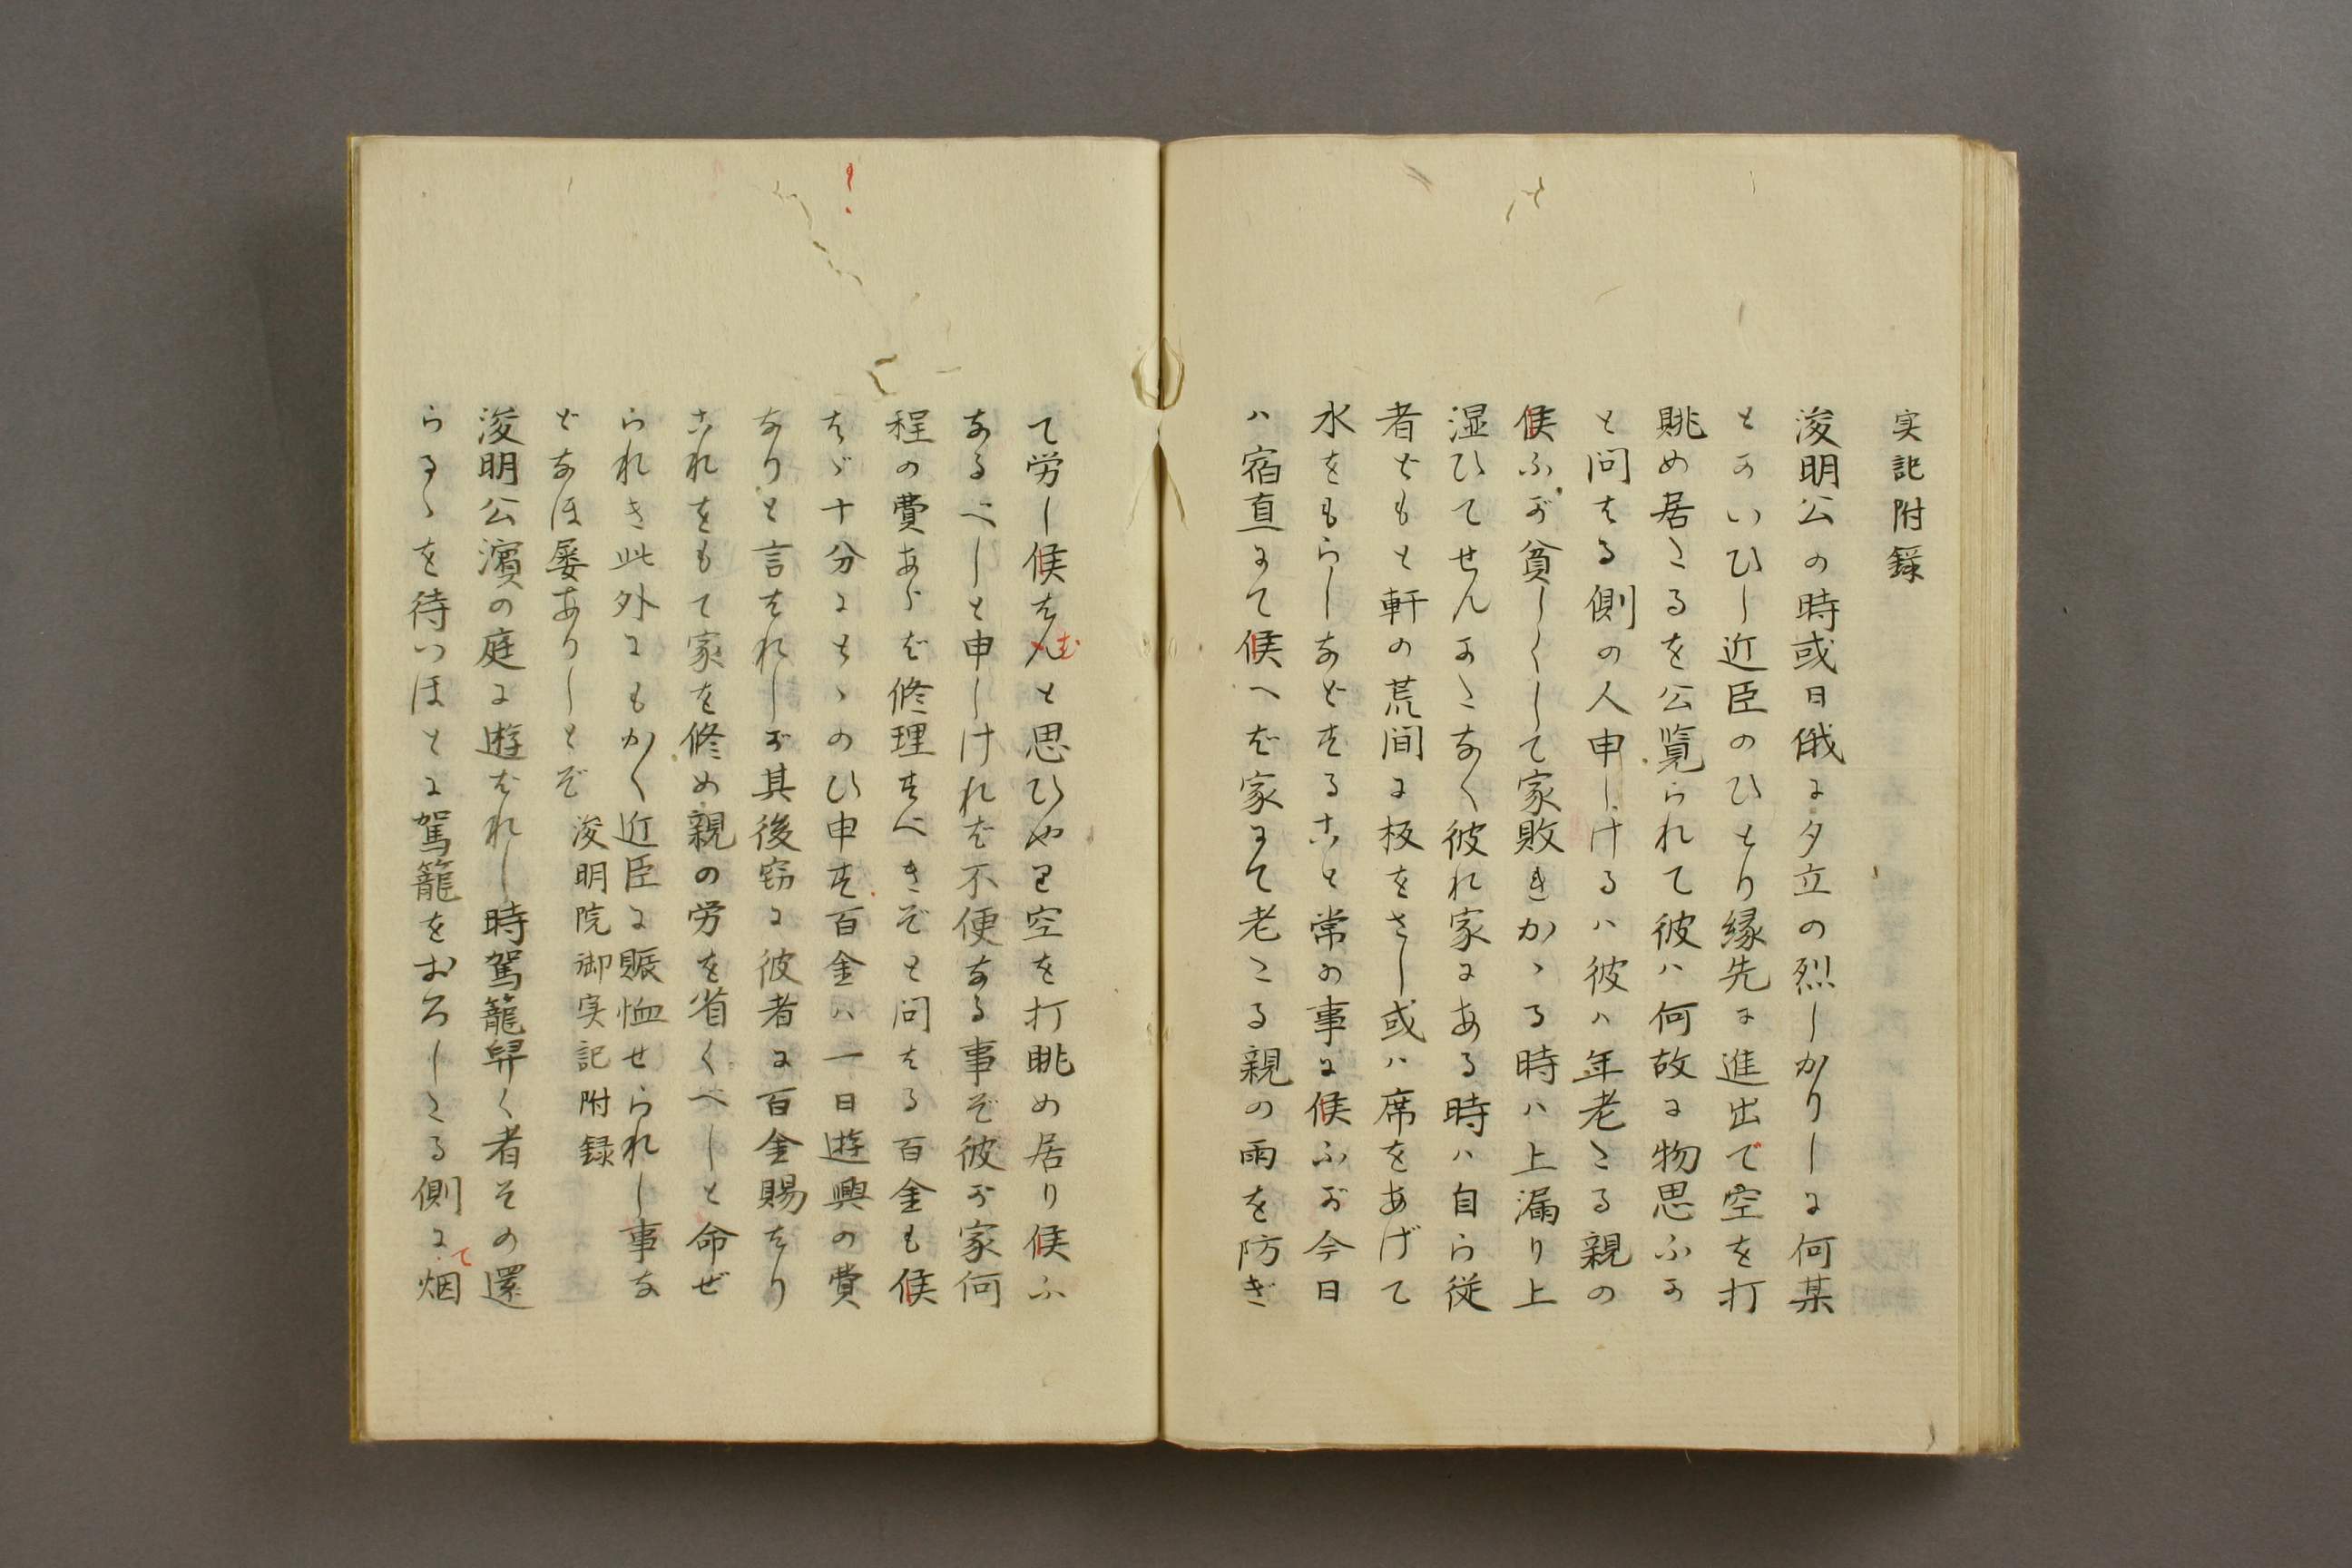 実記附録
浚明公の時或日俄に夕立の烈しかりしに何某
とかいひし近臣のひとり縁先に進出で空を打
眺め居たるを公覧られて彼ハ何故に物思ふか
と問はる側の人申しけるハ彼ハ年老たる親の
候ふが貧しくして家敗きかゝる時ハ上漏り上
湿ひてせんかたなく彼れ家にある時ハ自ら従
者どもと軒の荒間に板をさし或ハ席をあげて
水をもらしなどすること常の事に候ふが今日
ハ宿直にて候へば家にて老たる親の雨を防ぎ
て労し候はんと思ひやり空を打眺め居り候ふ
む
なるべしと申しければ不便なる事ぞ彼が家何
程の費あらば修理すべきぞと問はる百金も候
はゞ十分にとゝのひ申す百金ハ一日遊興の費
なりと言はれしが其後窃に彼者に百金賜はり
これをもて家を修め親の労を省くべしと命ぜ
られき此外にもかく近臣に賑恤せられし事な
どなほ屡ありしとぞ 浚明院御実記附録
浚明公濱の庭に遊ばれし時駕籠舁く者その還
らるゝを待つほとに駕籠をおろしたる側に烟
て